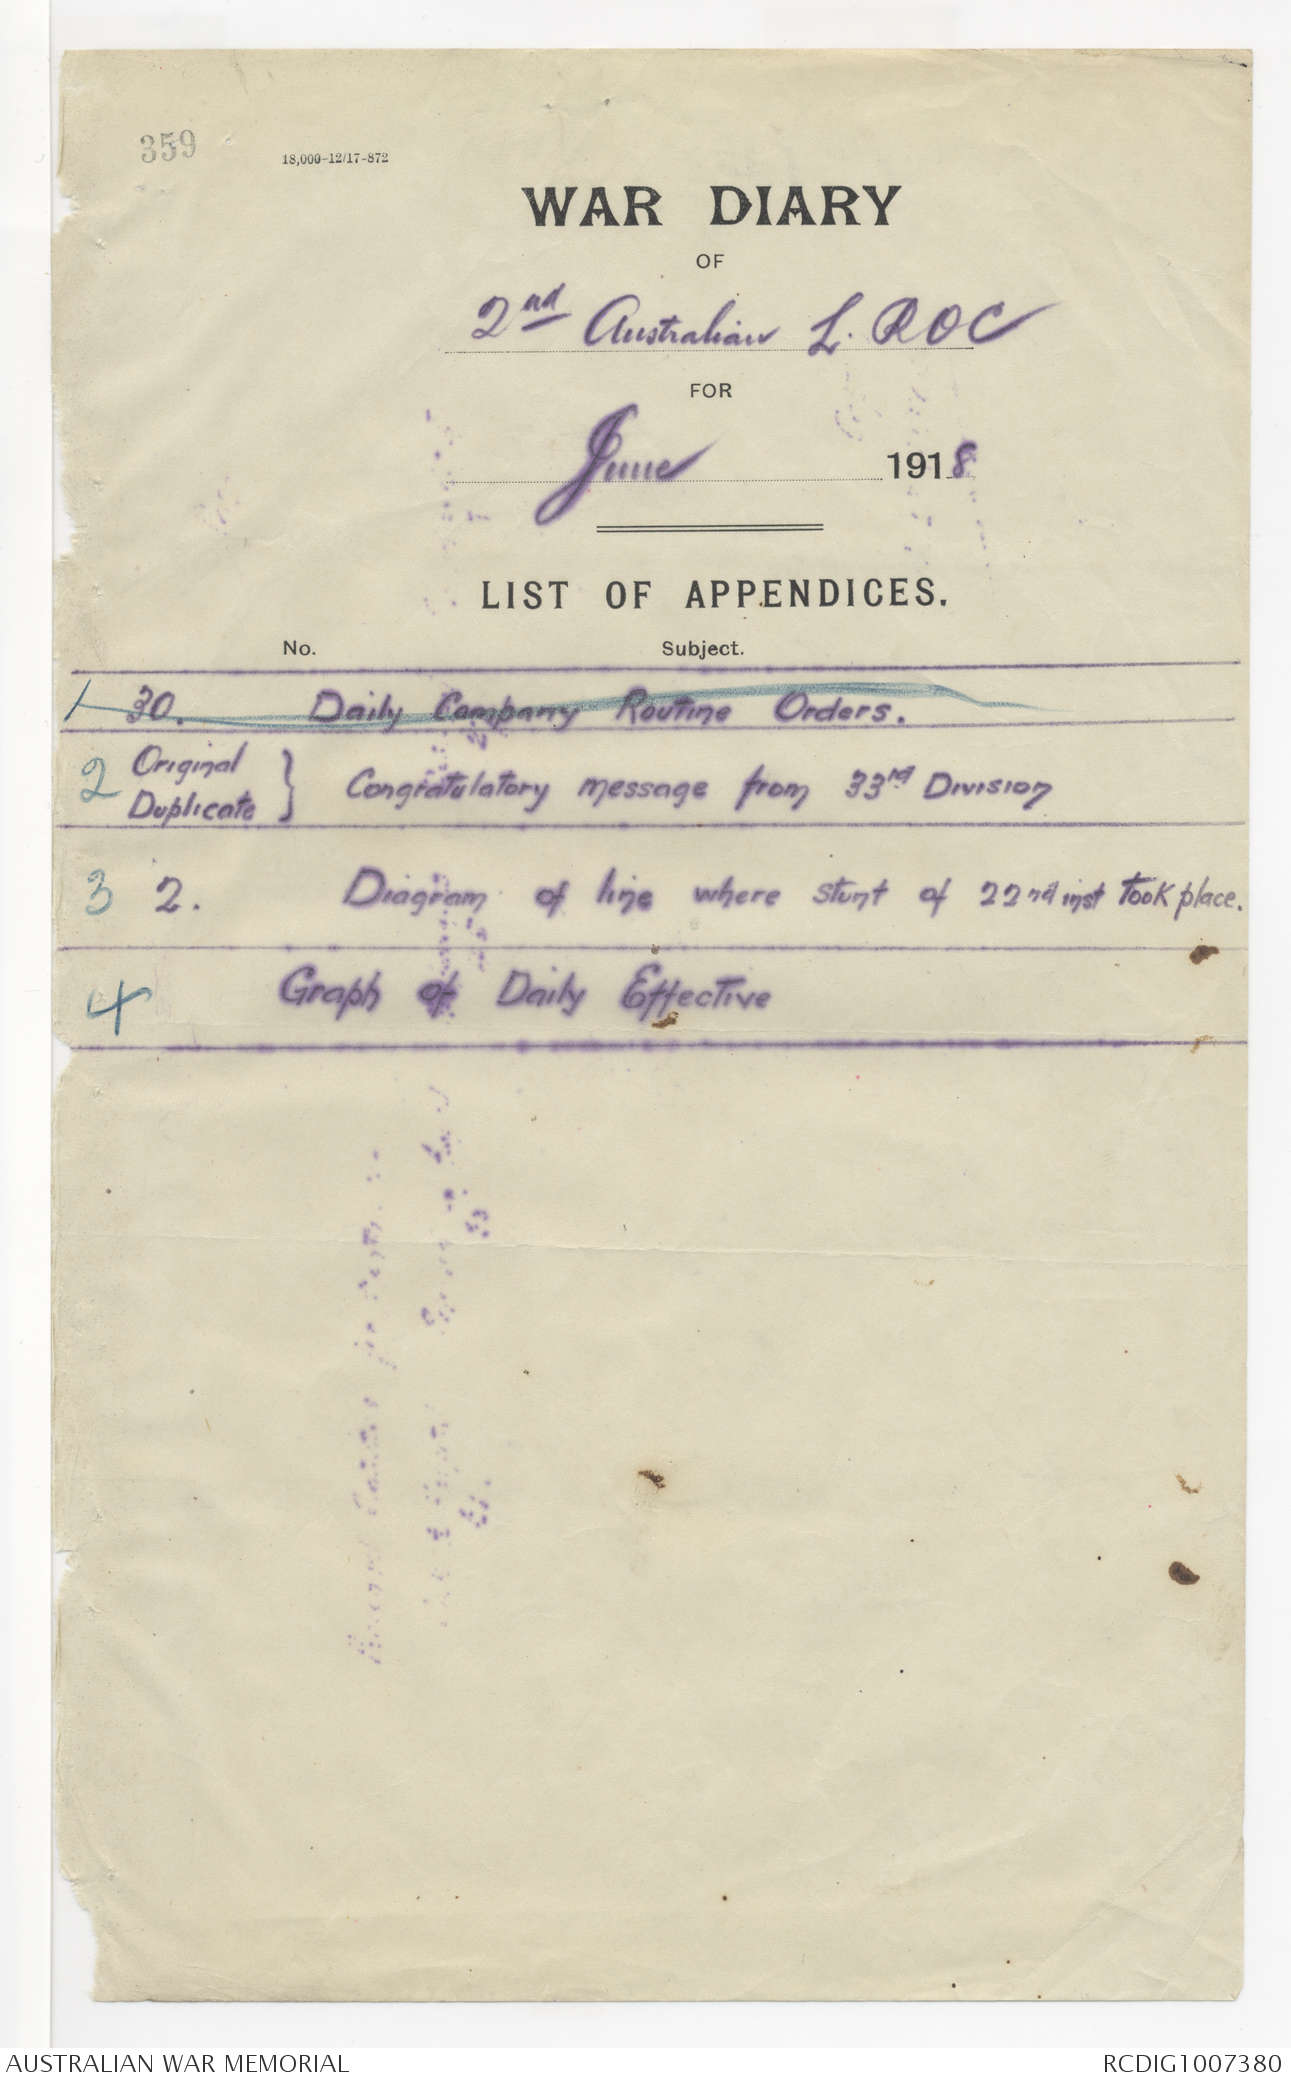 359
18,000-12/17-872
WAR DIARY
OF
2nd Australian L. ROC
FOR
June 1918
LIST OF APPENDICES.
No. Subject.
1 30. Daily Company Routine Orders.
2 Original Duplicate } Congratulatory message from 33rd Division
3 2. Diagram of line where stunt of 22nd inst took place.
4 Graph of Daily Effective
AUSTRALIAN WAR MEMORIAL
RCDIG1007380